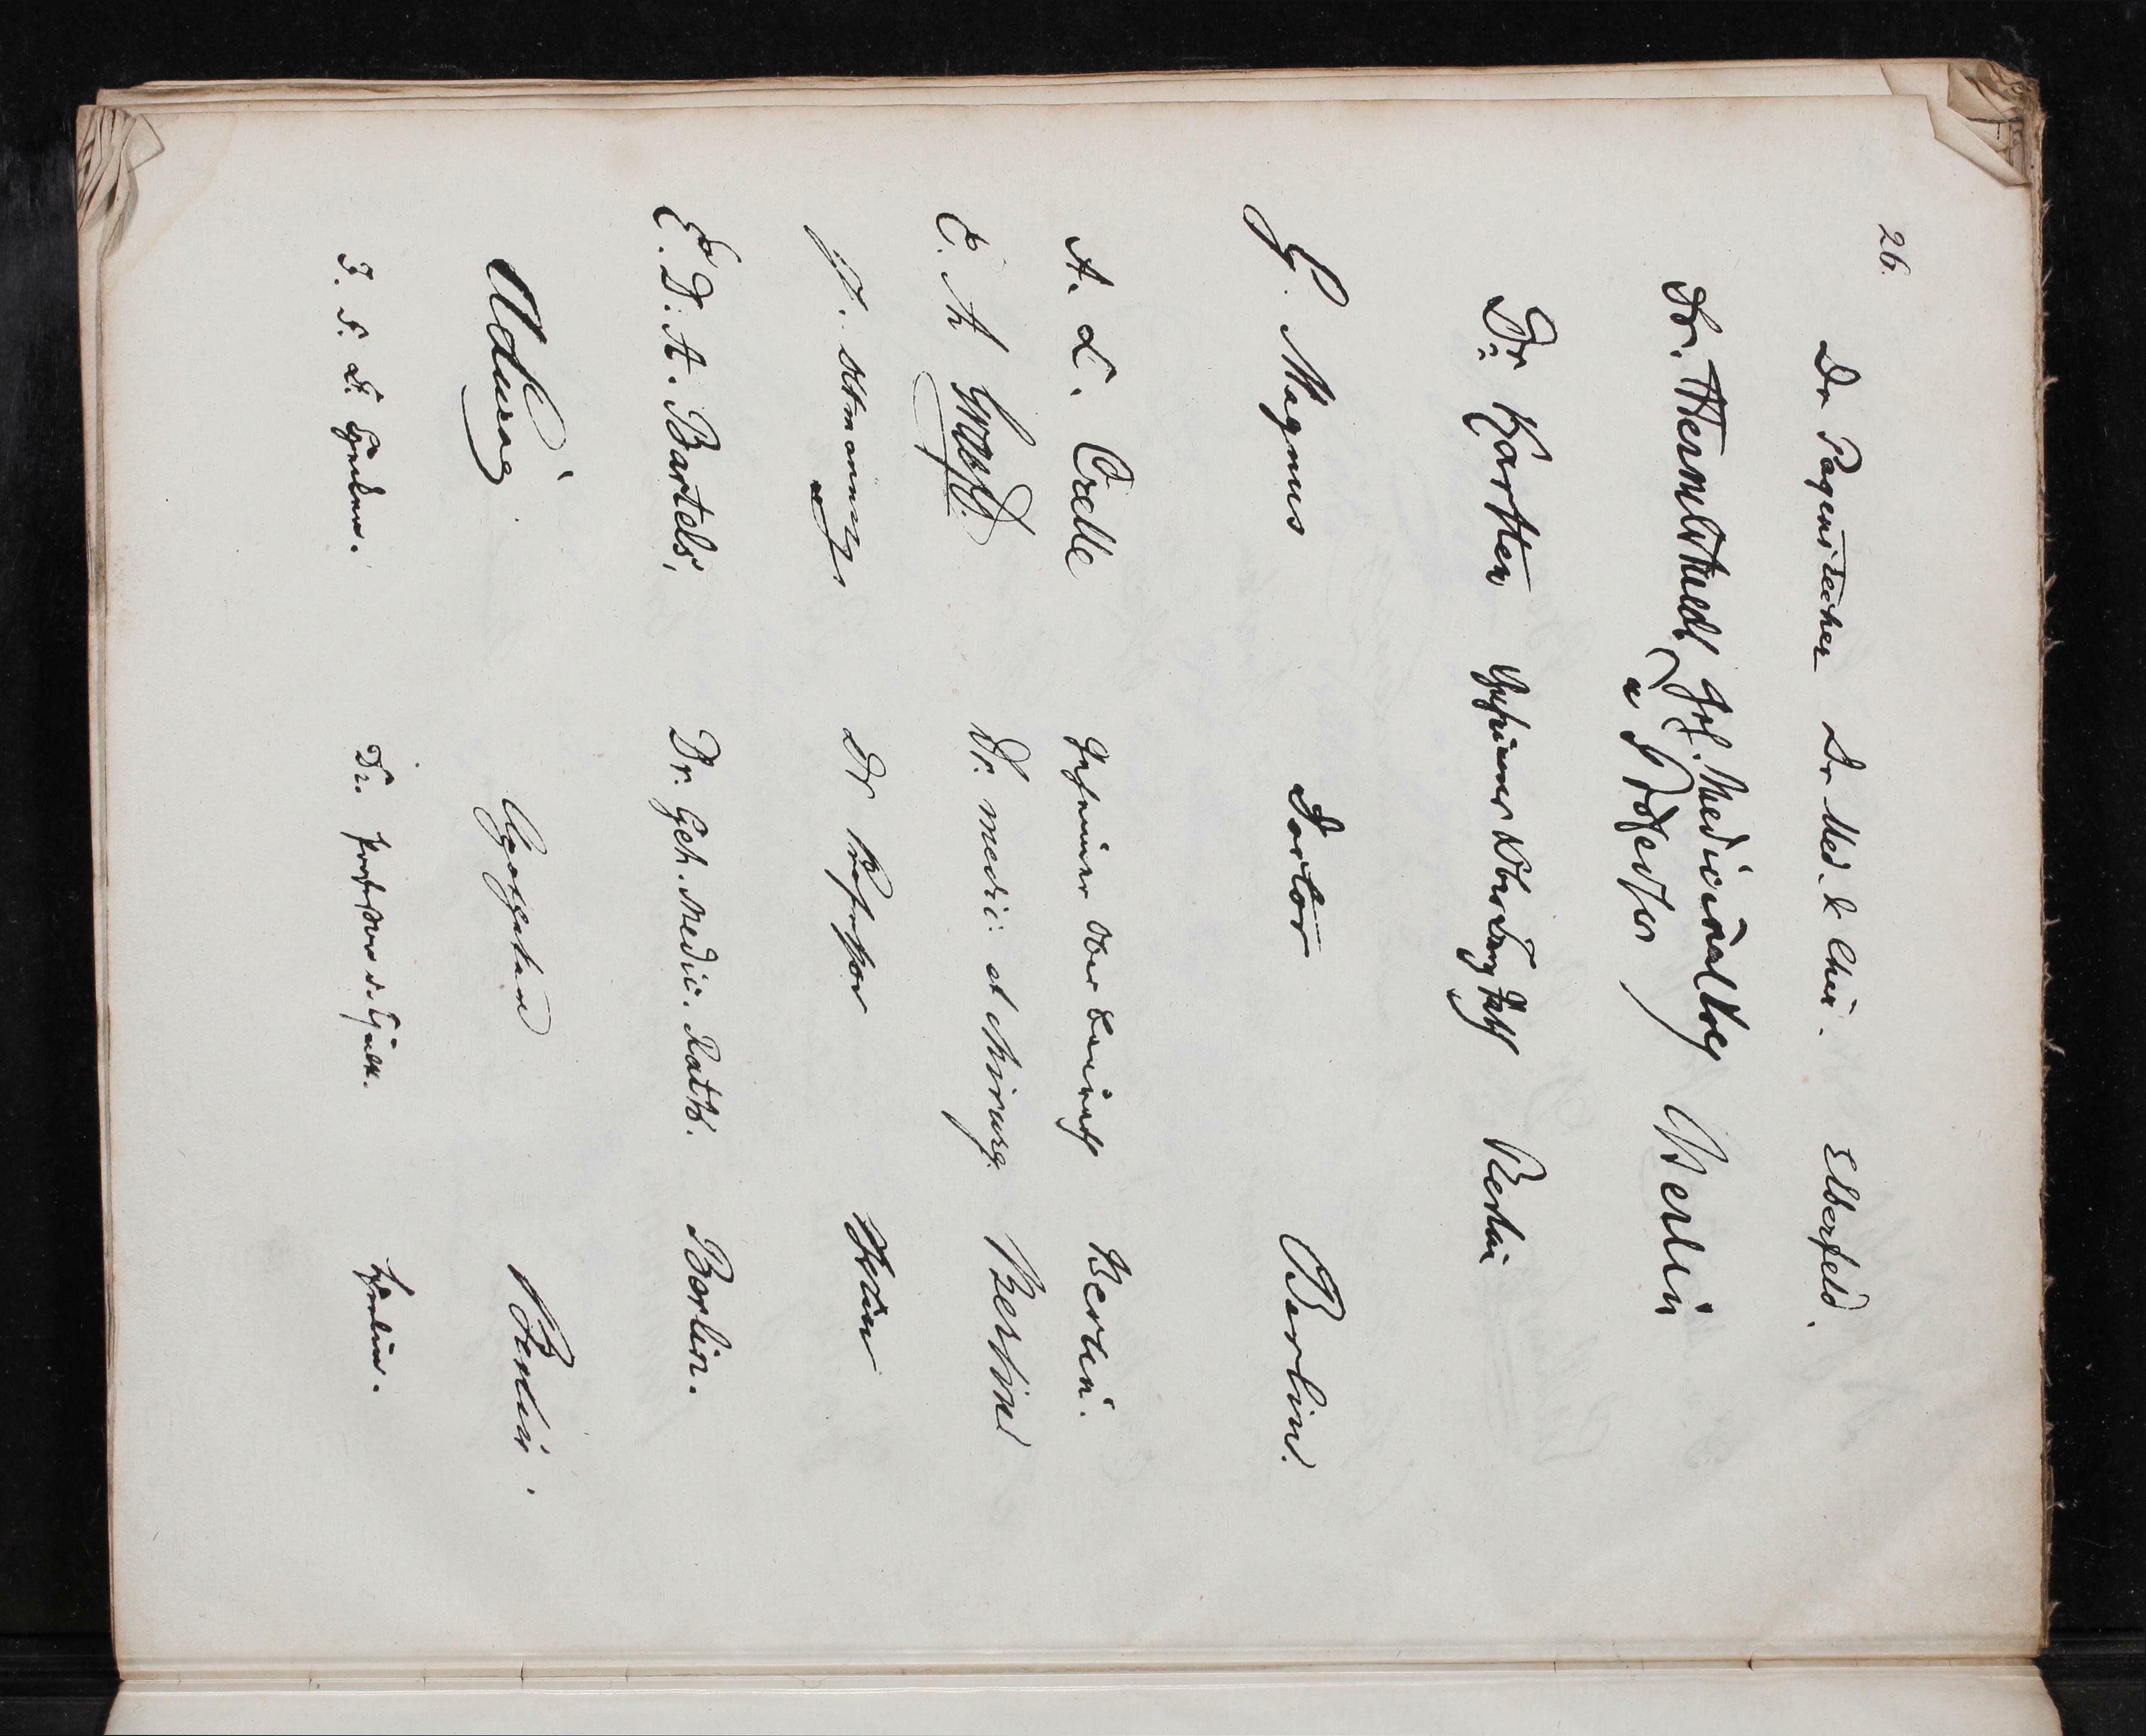 26.
Dr Pagenstecher Dr Med. & Chir. Elberfeld.
Dr. Hermbstaedt Geh. Medicinalrath
u Professor Berlin
Dr. Karsten Geheimer Ober Bergrath Berlin
G. Magnus Doctor Berlin.
A. L. Crelle Geheimer Ober Baurath Berlin.
C. A. Dr. medic: et chirurg. Berlin
Dr Professor Berlin
E. D. A. Bartels, Dr. Geh. Medic. Rath. Berlin.
Berlin.
Dr. Professor Berlin.